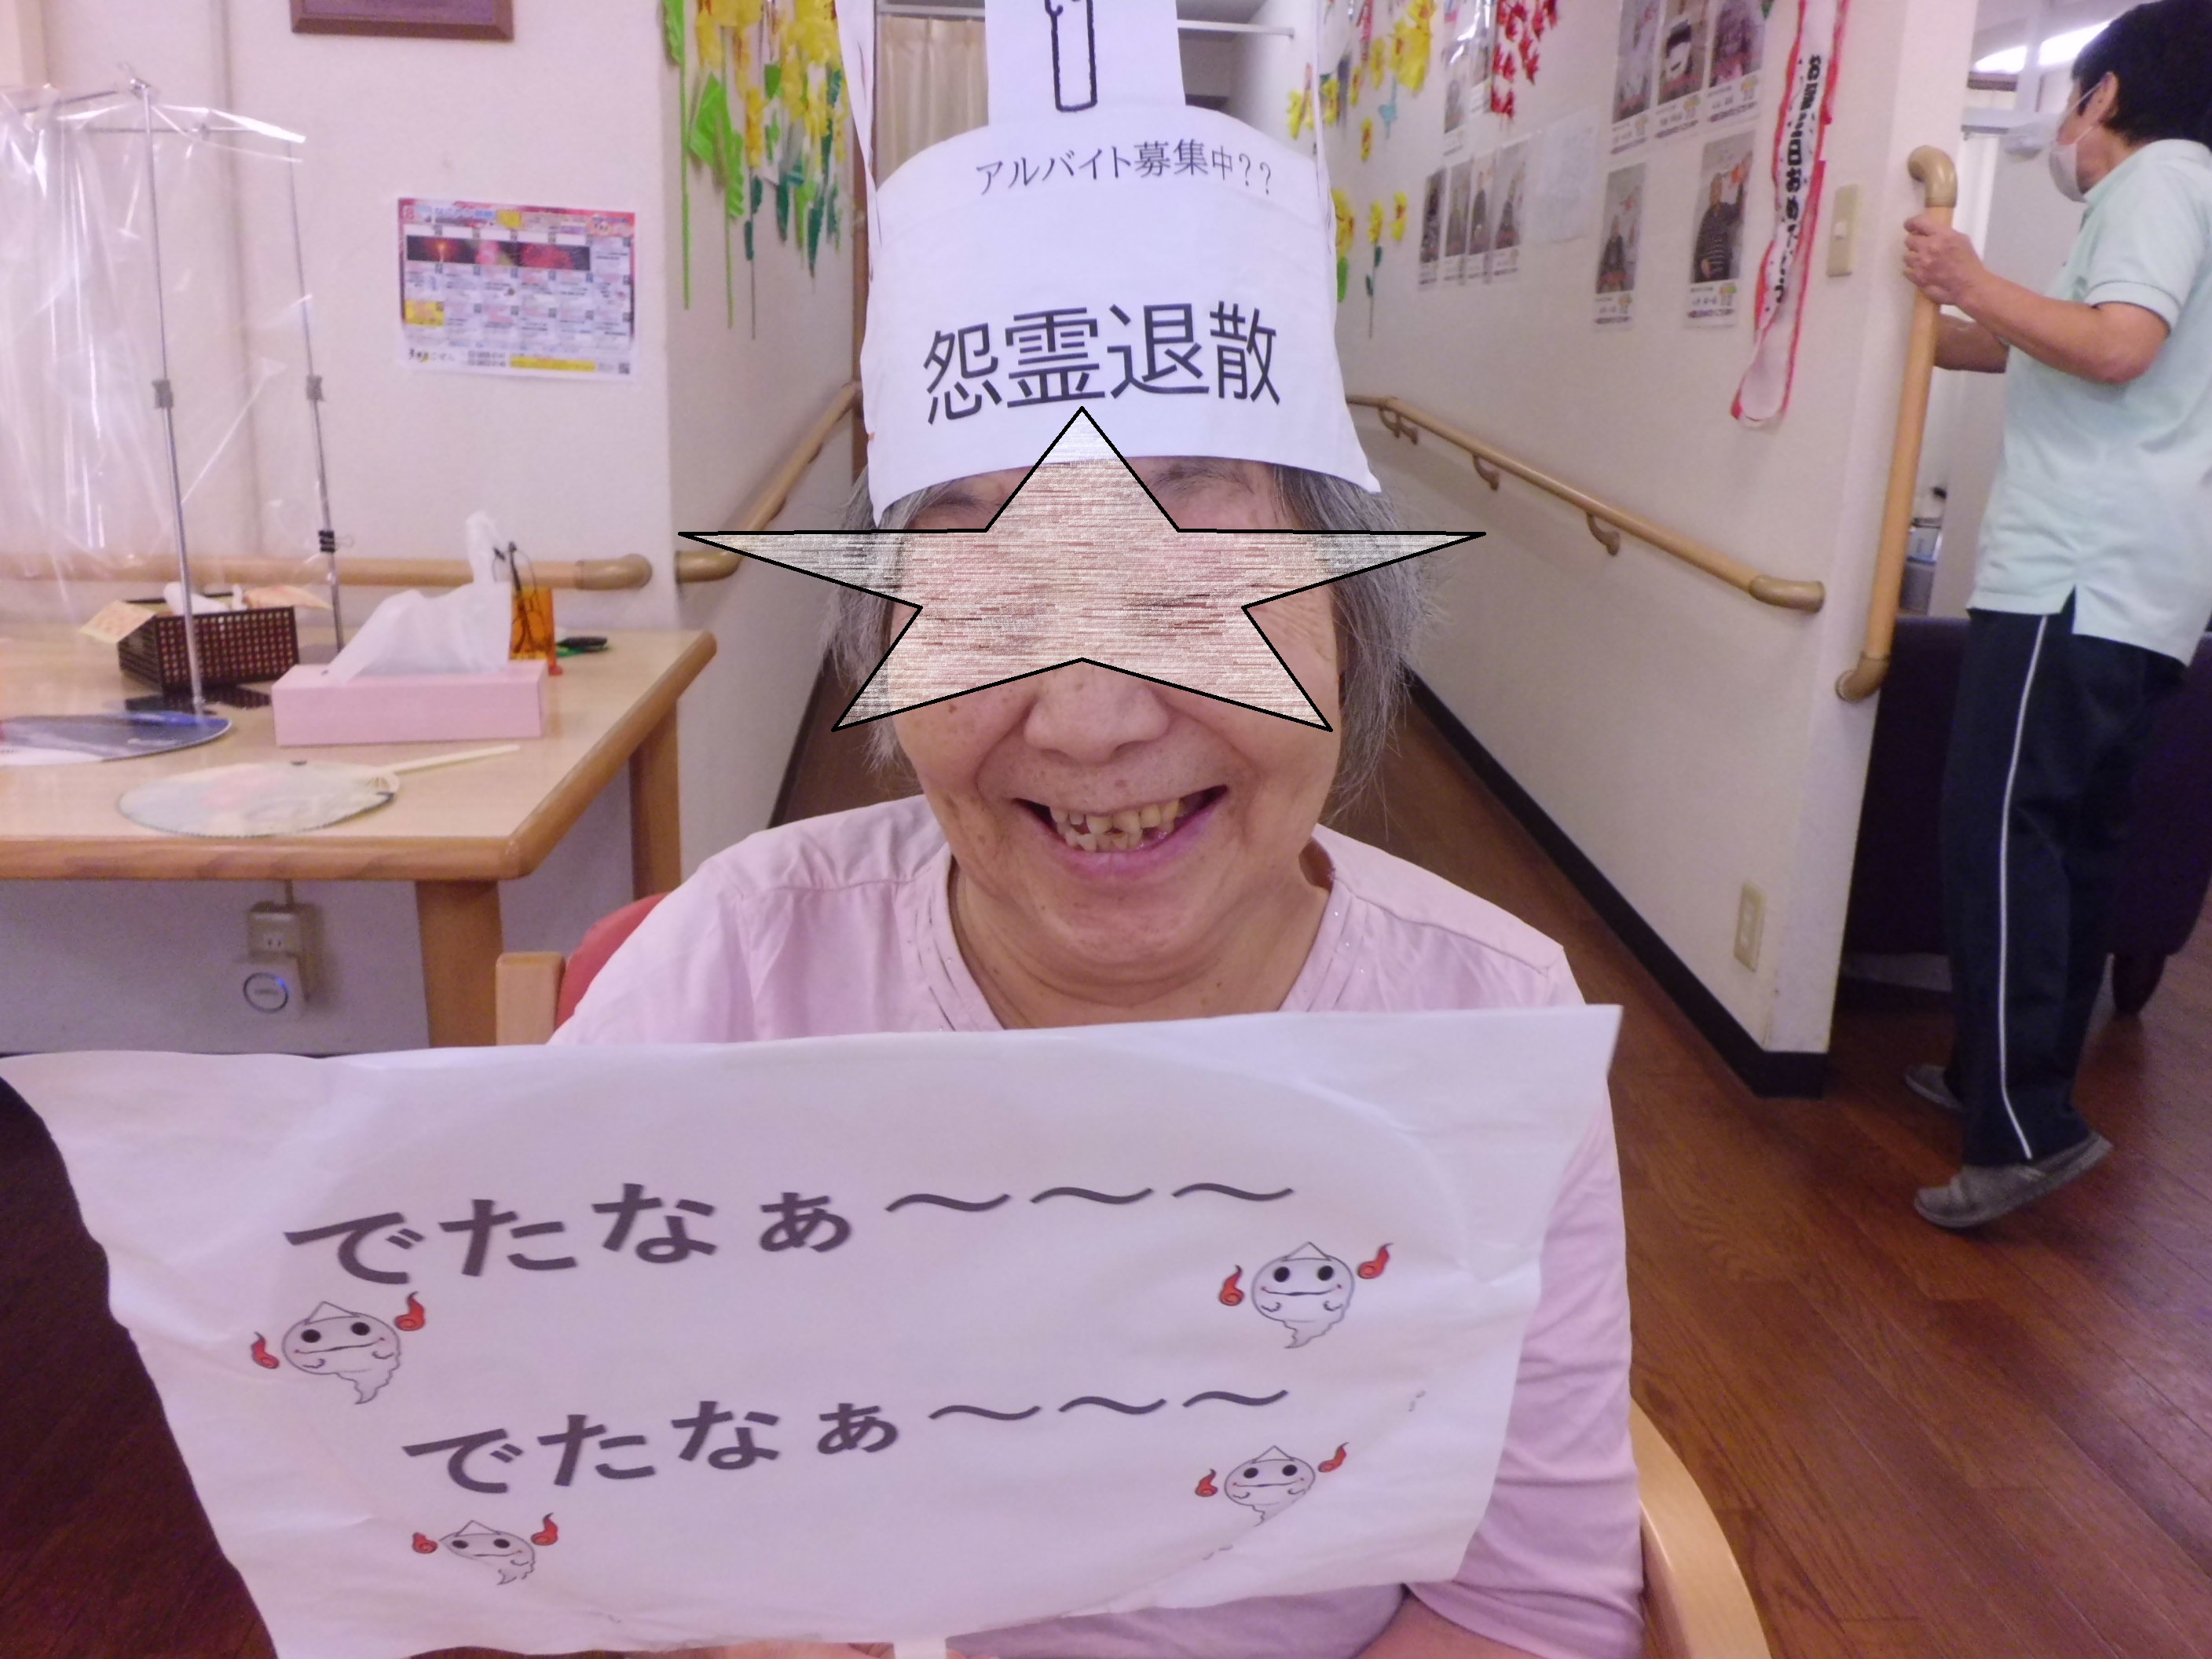 アルバイト募集中??
怨霊退散
でたなぁ～～～
でたなぁ～～～